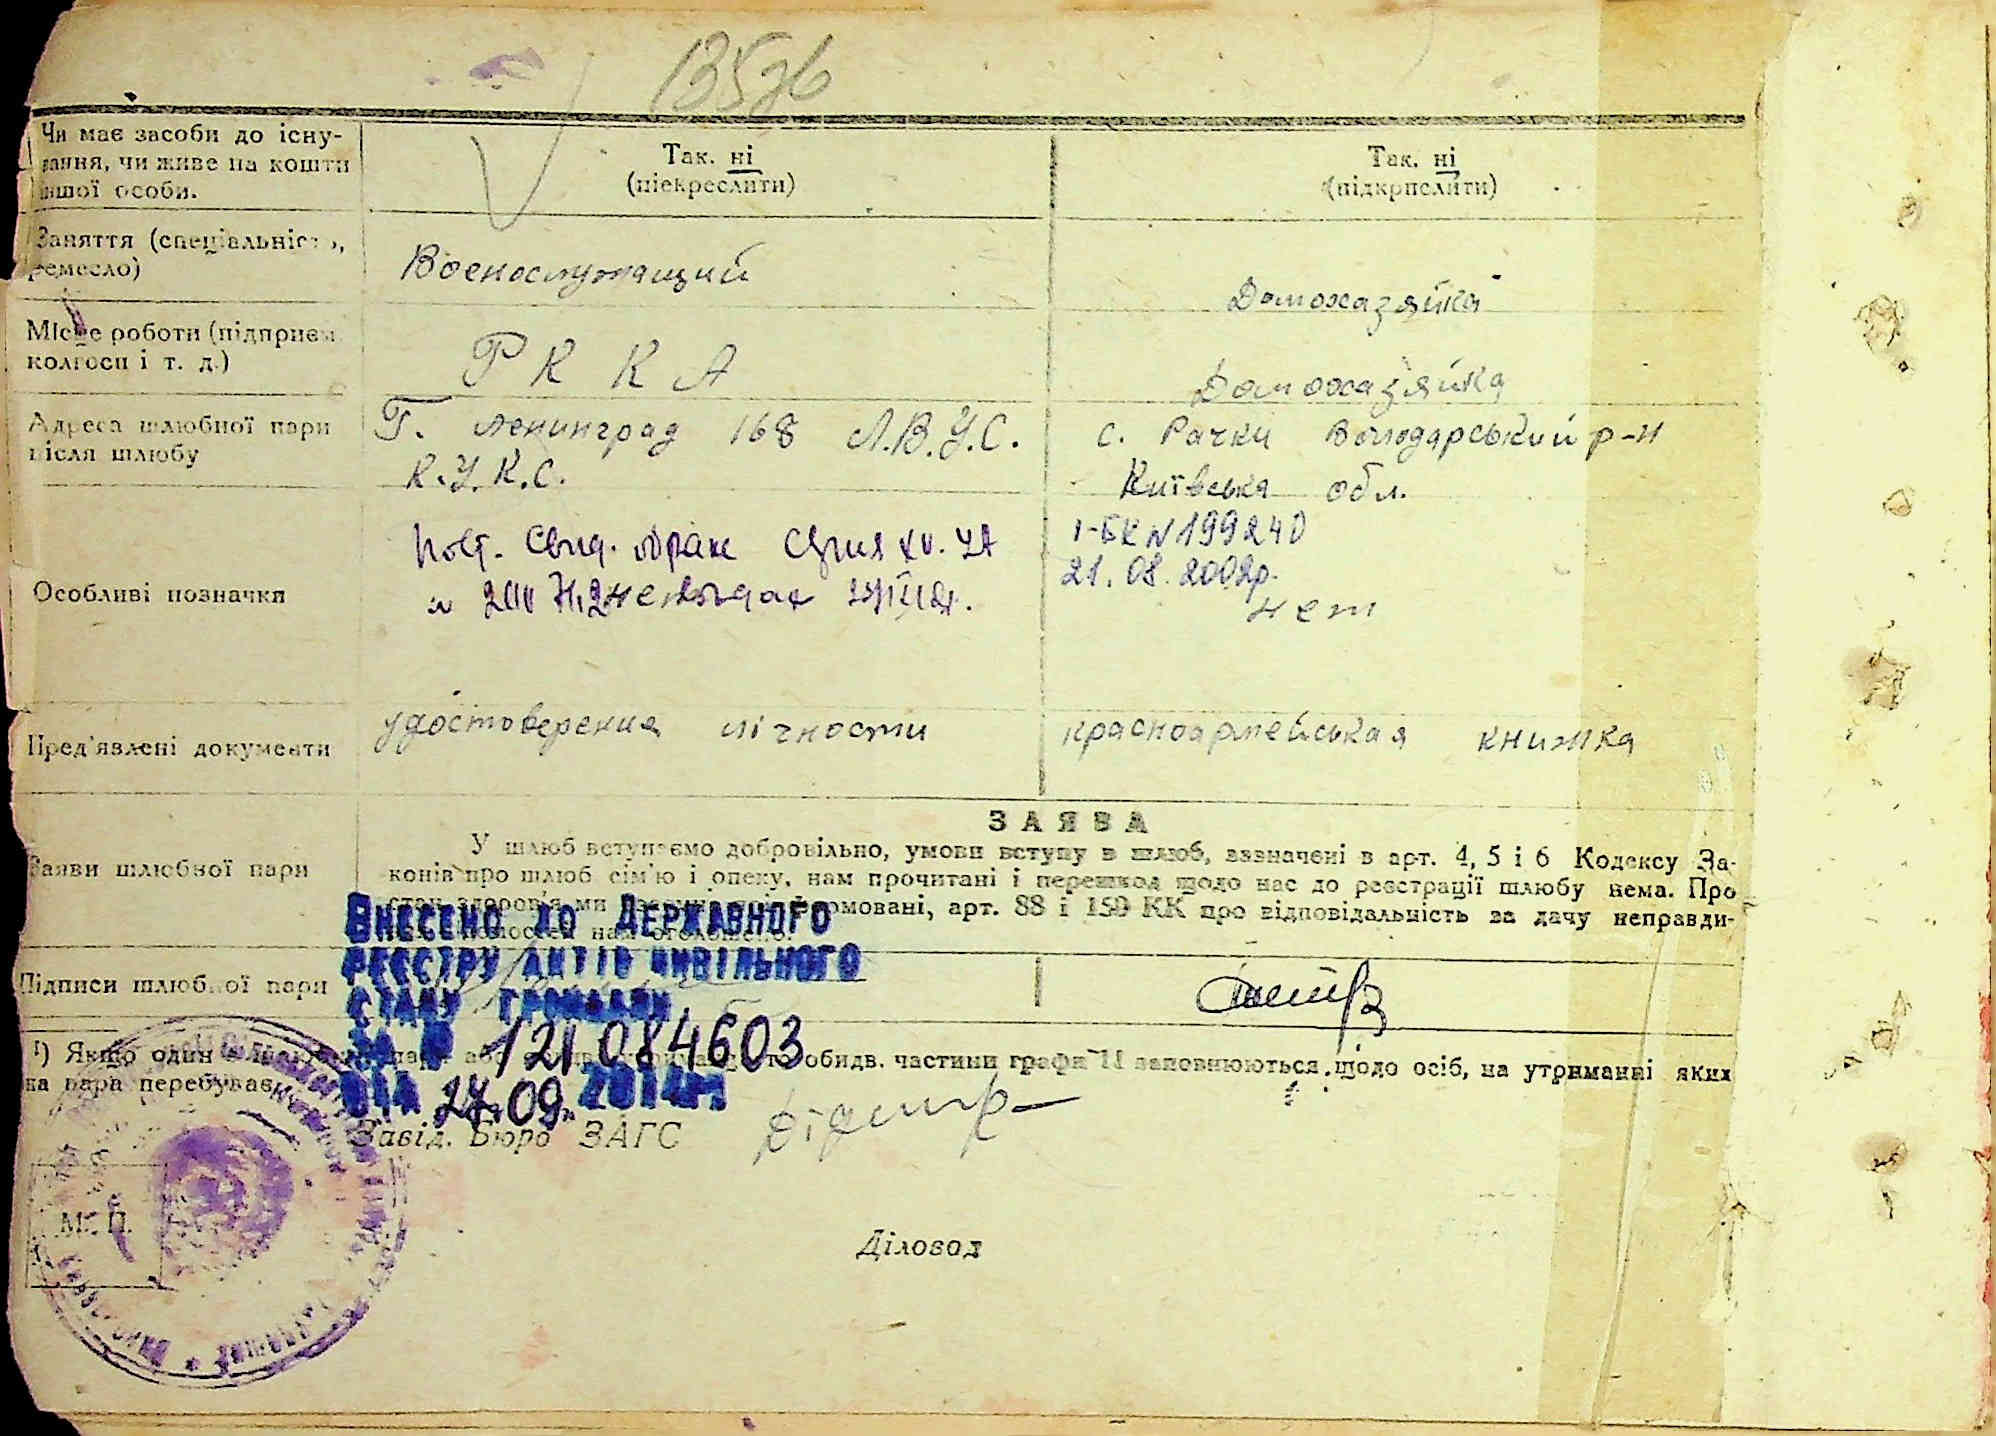 135
Чи має засоби до існу-
вання, чи живе на кошти
іншої особи.
Так. ні
(піекреслити)
Так. ні
(підкрпслити)
Заняття (спеціальність,
ремесло)
Военослужащий
Домохазяйка
Місце роботи (підприєм.
колгосп і т. д.)
Р К К А
Домохазяйка
Адреса шлюбної пари
після шлюбу
Г. Ленинград 168 Л.В.У.С.
К.У.К.С.
с. Рачки Володарський р-н
Київська обл.
Особливі позначки
Повт. Свид. о браке Серия
I-БК N 199240
21.08.2002р.
нет
Пред'явлені документи
удостоверения лічности
красноармейськая книжка
Заяви шлюбної пари
ЗАЯВА
У шлюб вступаємо добровільно, умови вступу в шлюб, зазначені в арт. 4, 5 і 6 Кодексу За-
конів про шлюб сім'ю і опеку, нам прочитані і перешкод щодо нас до реєстрації шлюбу нема. Про
стан здоров'я ми формовані, арт. 88 і 159 КК про відповідальність за дачу неправди-
нам оголошено.
Підписи шлюбної пари
Внесено до Державного
реєстру актів цивільного
стану громадян
за № 121 084603
від 27.09. 2014р
¹) Якщо один обидв. частини графи 11 заповнюються щодо осіб, на утриманні яких
на пара перебуває
Завід. Бюро ЗАГС
М. П.
Діловод